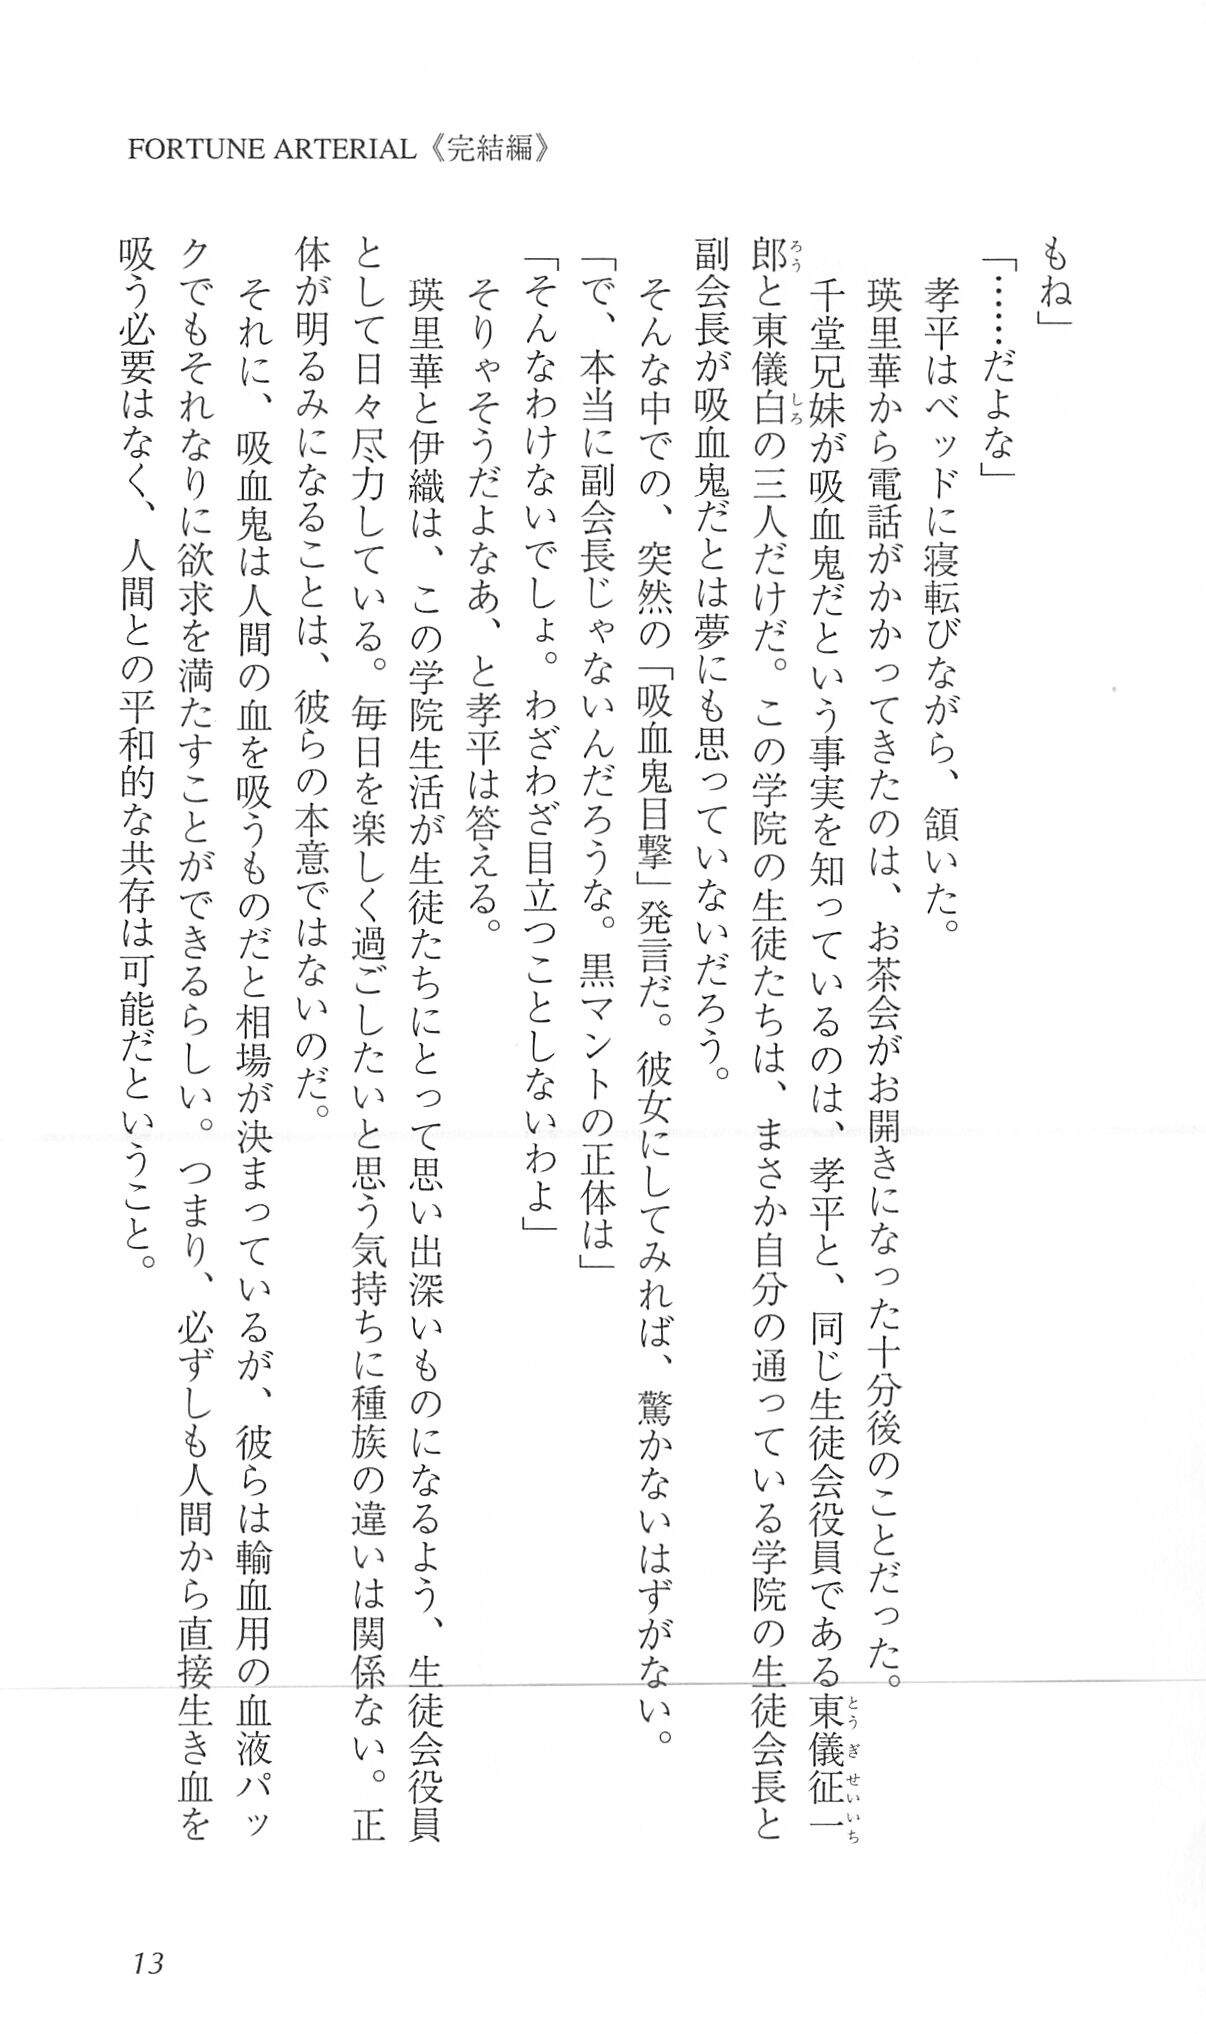 FORTUNE ARTERIAL《完結編》
もね」
「……だよな」
孝平はベッドに寝転びながら、頷いた。
瑛里華から電話がかかってきたのは、お茶会がお開きになった十分後のことだった。
千堂兄妹が吸血鬼だという事実を知っているのは、孝平と、同じ生徒会役員である東儀征一
郎と東儀白の三人だけだ。この学院の生徒たちは、まさか自分の通っている学院の生徒会長と
副会長が吸血鬼だとは夢にも思っていないだろう。
そんな中での、突然の「吸血鬼目撃」発言だ。彼女にしてみれば、驚かないはずがない。
「で、本当に副会長じゃないんだろうな。黒マントの正体は」
「そんなわけないでしょ。わざわざ目立つことしないわよ」
そりゃそうだよなあ、と孝平は答える。
瑛里華と伊織は、この学院生活が生徒たちにとって思い出深いものになるよう、生徒会役員
として日々尽力している。毎日を楽しく過ごしたいと思う気持ちに種族の違いは関係ない。正
体が明るみになることは、彼らの本意ではないのだ。
それに、吸血鬼は人間の血を吸うものだと相場が決まっているが、彼らは輸血用の血液パッ
クでもそれなりに欲求を満たすことができるらしい。つまり、必ずしも人間から直接生き血を
吸う必要はなく、人間との平和的な共存は可能だということ。
13